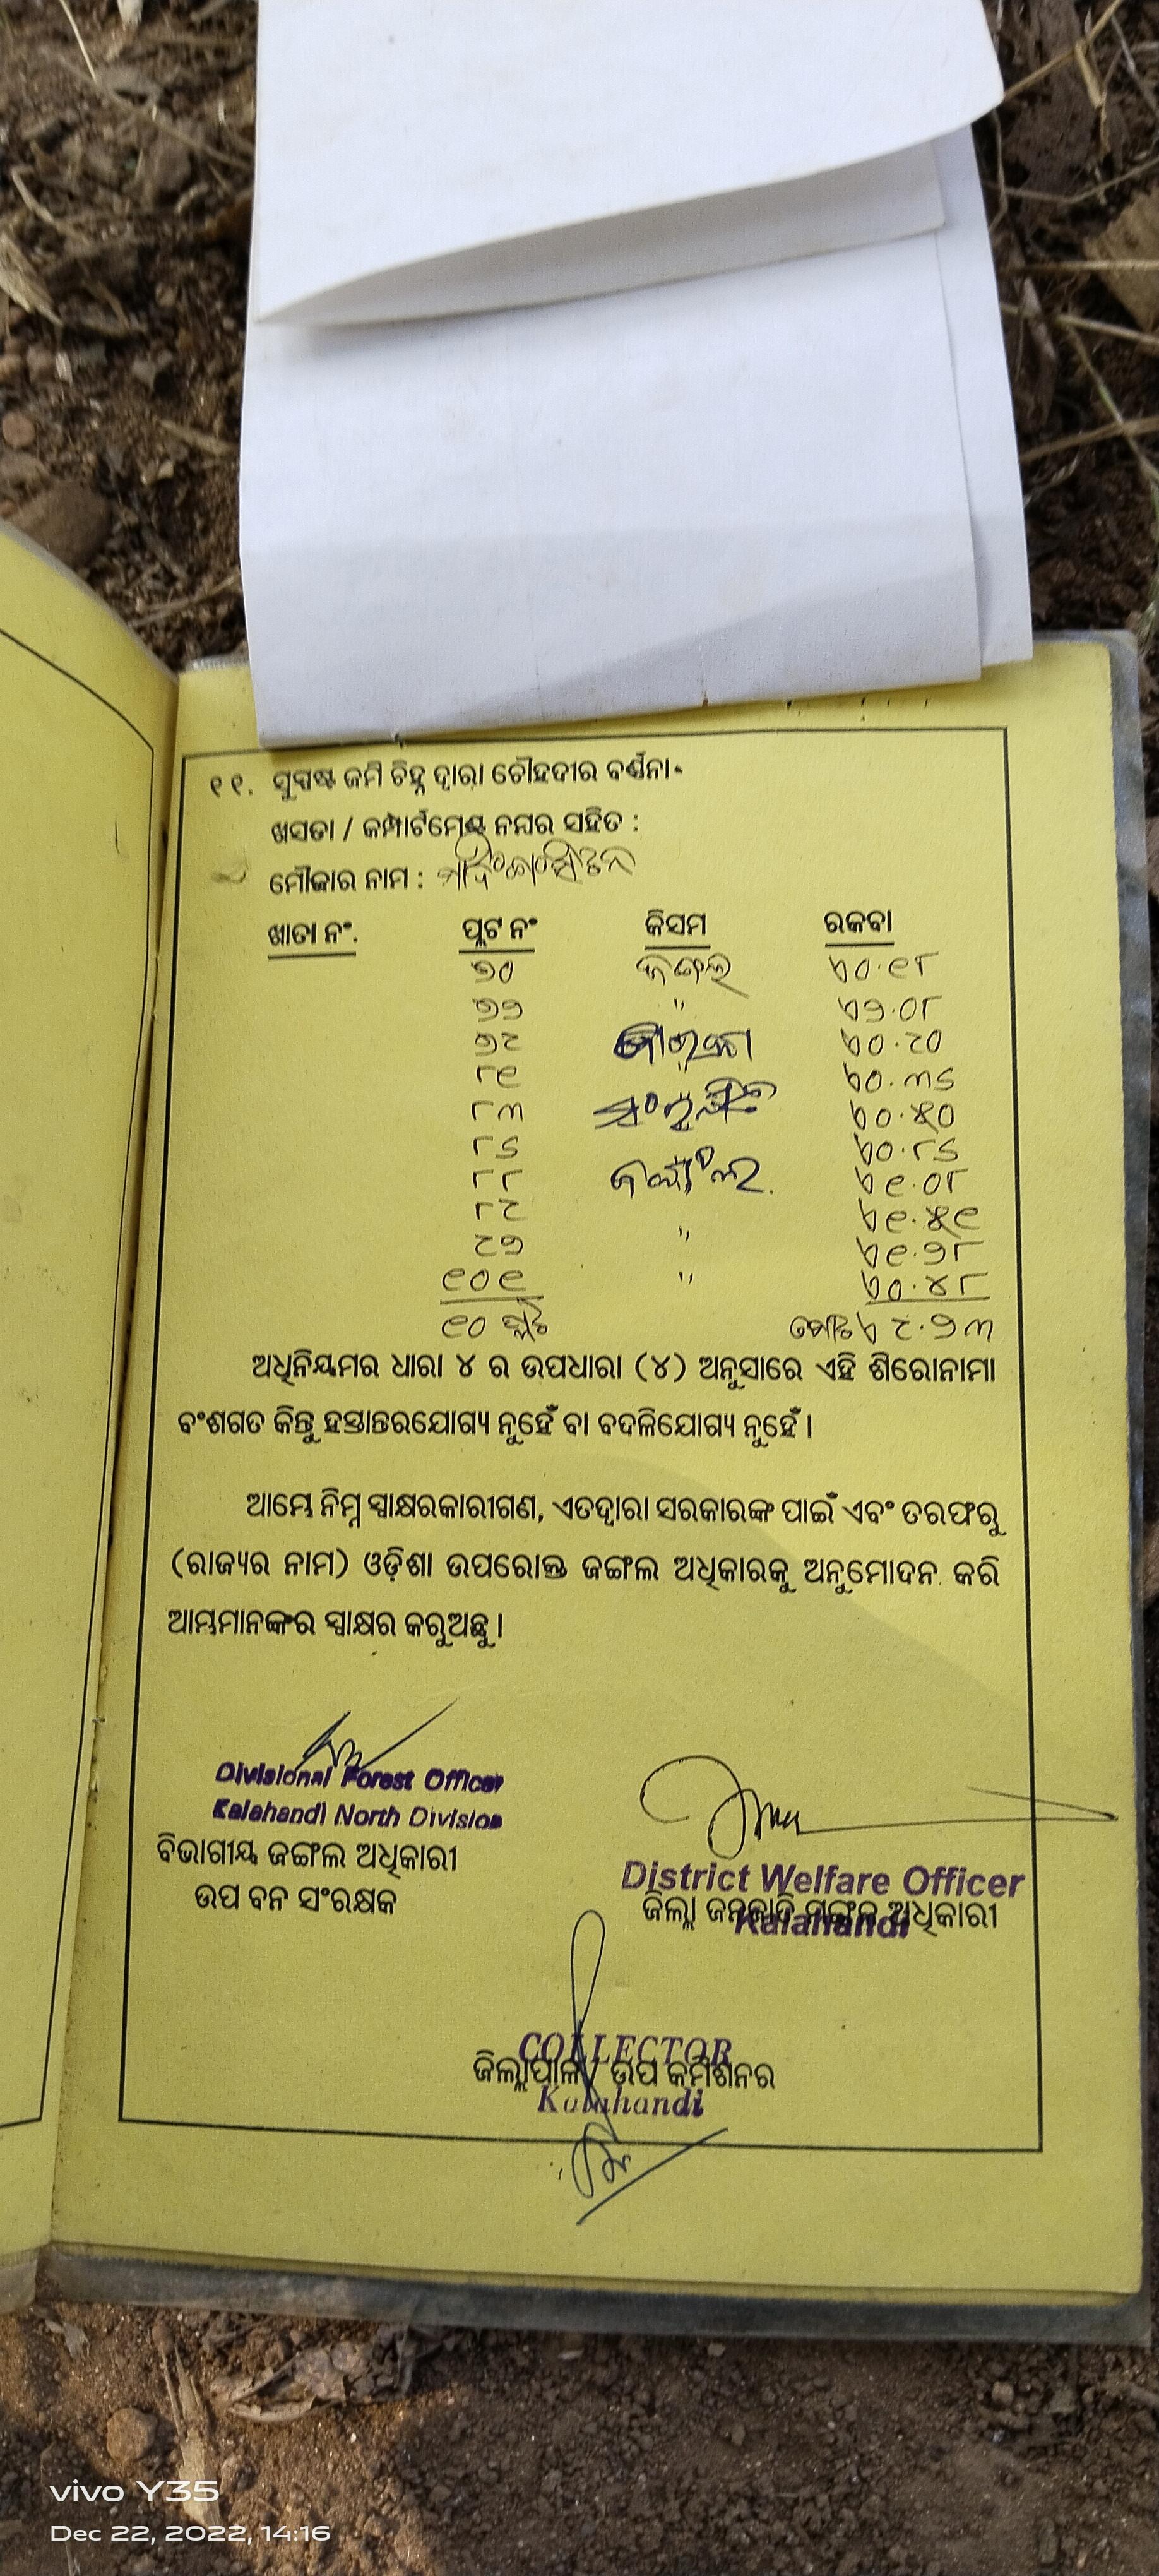 ୧୧. ସୁସ୍ପଷ୍ଟ ଜମି ଚିହ୍ନ ଦ୍ୱାରା ଚୌହଦୀର ବର୍ଣ୍ଣନା-
ଖସଡା / କମ୍ପାର୍ଟମେଣ୍ଟ ନମ୍ବର ସହିତ :
ମୌଜାର ନାମ :
ଖାତା ନଂ. ପ୍ଲଟ ନଂ କିସମ ରକବା
୭୦ ଜଙ୍ଗଲ ଏ୦.୧୮
୭୨ " ଏ୨.୦୮
୭୯ ଏ୦.୯୦
୮୧ " ଏ୦.୩୬
୮୩ ଏ୦.୫୦
୮୬ ଏ୦.୮୬
୮୮ ଏ୧.୦୮
୮୯ ଏ୧.୫୧
୯୭ " ଏ୧.୨୮
୧୦୧ " ଏ୦.୪୮
୧୦ ପ୍ଲଟ ମୋଟ ଏ ୯.୨୩
ଅଧିନିୟମର ଧାରା ୪ ର ଉପଧାରା (୪) ଅନୁସାରେ ଏହି ଶିରୋନାମା
ବଂଶଗତ କିନ୍ତୁ ହସ୍ତାନ୍ତରଯୋଗ୍ୟ ନୁହେଁ ବା ବଦଳିଯୋଗ୍ୟ ନୁହେଁ ।
ଆମ୍ଭେ ନିମ୍ନ ସ୍ୱାକ୍ଷରକାରୀଗଣ, ଏତଦ୍ୱାରା ସରକାରଙ୍କ ପାଇଁ ଏବଂ ତରଫରୁ
(ରାଜ୍ୟର ନାମ) ଓଡ଼ିଶା ଉପରୋକ୍ତ ଜଙ୍ଗଲ ଅଧିକାରକୁ ଅନୁମୋଦନ କରି
ଆମ୍ଭମାନଙ୍କର ସ୍ୱାକ୍ଷର କରୁଅଛୁ ।
Divisional Forest Officer
Kalahandi North Division
ବିଭାଗୀୟ ଜଙ୍ଗଲ ଅଧିକାରୀ
ଉପ ବନ ସଂରକ୍ଷକ
District Welfare Officer
ଜିଲ୍ଲା ଜନଜାତି ମଙ୍ଗଳ ଅଧିକାରୀ
Kalahandi
COLLECTOR
ଜିଲ୍ଲାପାଳ / ଉପ କମିଶନର
Kalahandi
vivo Y35
Dec 22, 2022, 14:16